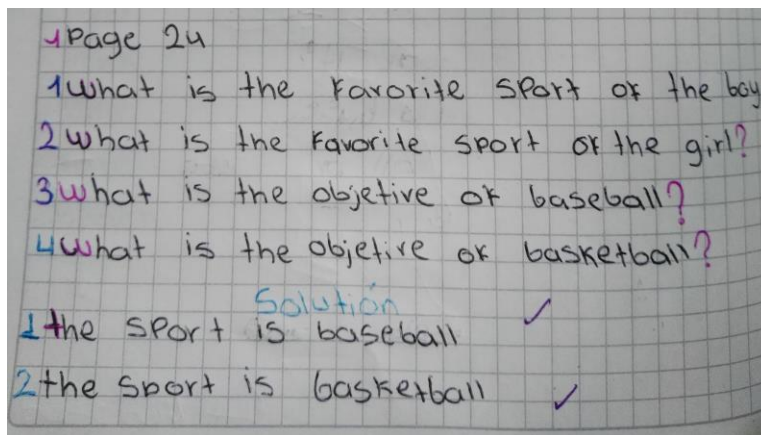 1 Page 24
1 What is the Favorite sport of the boy
2 what is the Favorite sport of the girl?
3 what is the objetive of baseball?
4 what is the objetive of basketball?
Solutión
1 the sport is baseball
2 the sport is basketball